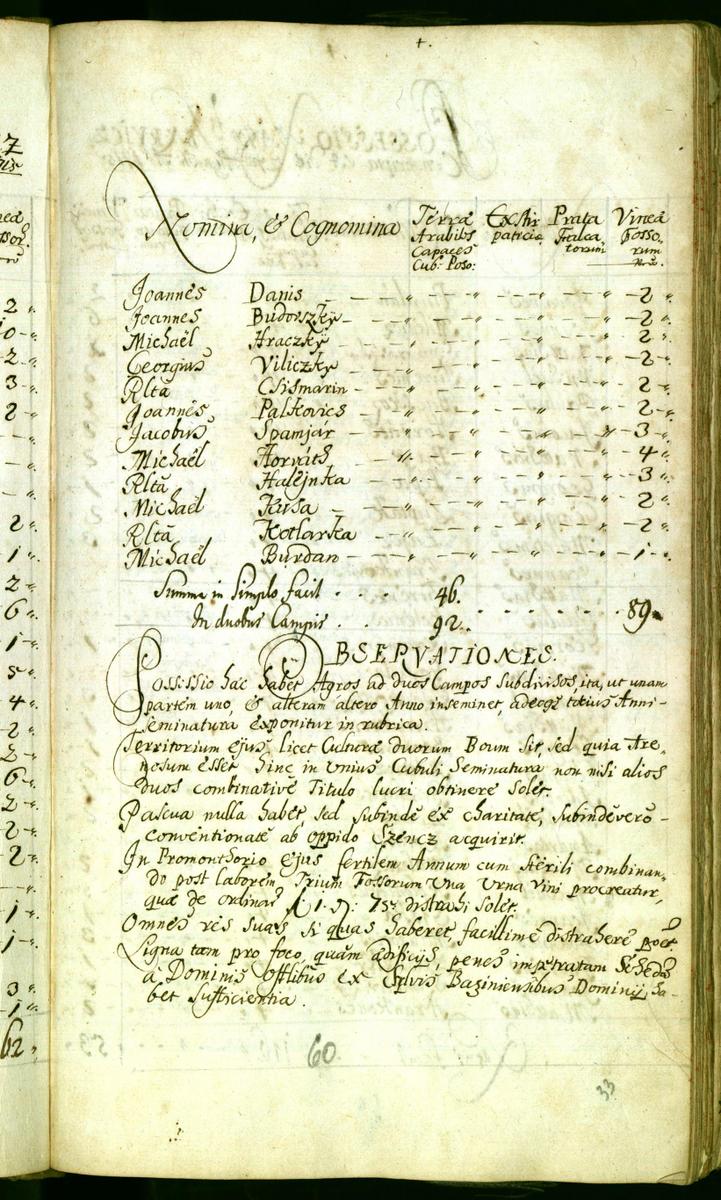 Nomina, & Cognomina Terrae Exstir Prata Vinea
Arabiles paticia Falca Fosso
Capaces torum rum
Cub: Poso: Nrũ.
Joannes Danis 2
Joannes Budoszky 2
Michaël Hraczky 2
Georgius Viliczky
Rlta Csismarin 2
Joannes Palkovics 2
Jacobus Spamjár 3
Michaël Horváth 4
Rlta Halejnka 3
Michaël Kusa 2
Rlta Kotlarka 2
Michaël Burdan 1
Summa in Simplo facit 46.
In duobus Campis 92. 89
OBSERVATIONES.
Possessio haec habet Agros ad duos Campos Subdivisos, ita, ut unam
partem uno, & alteram altero Anno inseminet, adeoqe totius Anni
Seminatura exponitur in rubrica.
Territorium ejus, licet Culturae duorum Boum sit, sed quia Are-
nosum esset, hinc in Unius Cubuli Seminatura non nisi alios
duos combinative Titulo lucri obtinere solet.
Pascua nulla habet, sed subinde ex charitate, subinde vero
conventionate ab oppido Szencz acquirit.
In Promonthorio ejus fertilem Annum cum Sterili combinan-
do post Laborem Trium Fossorum Una Urna Vini procreatur,
quae de ordinar 1. 75 distrahi solet.
Omnes res suas si quas haberet, facillime distrahere
Ligna tam pro foco, quam aedificijs, penes impetratam Schedam
à Dominis Offlibus ex Sylvis Baziniensibus Dominij ha-
bet Sufficientia.
60.
33